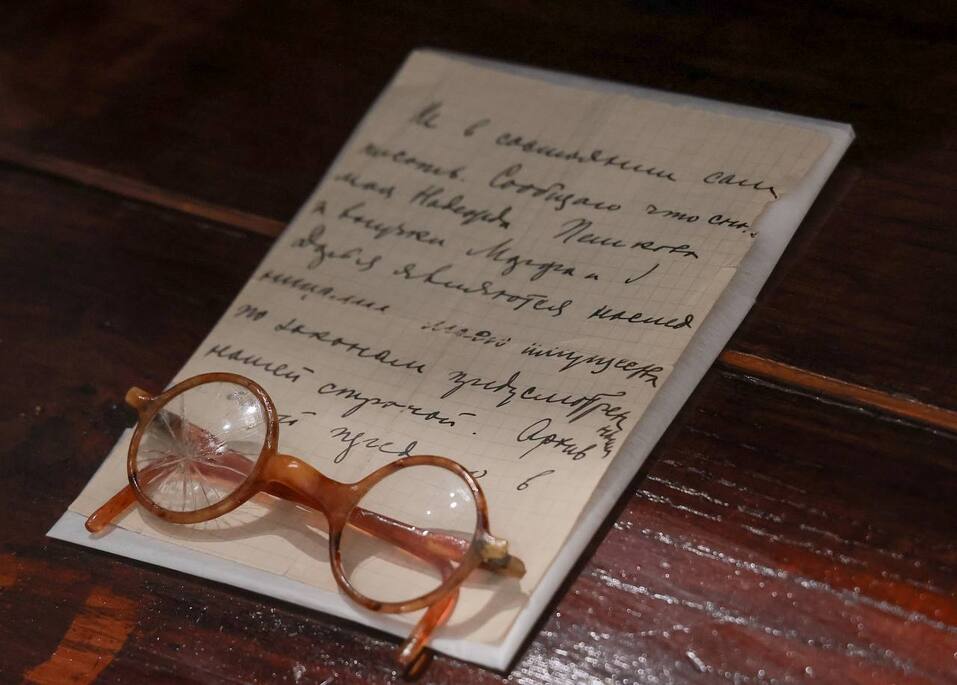 Не в состоянии сам
писать. Сообщаю что сно..
моя Надежда Пешкова
и внучки Марфа и
Дарья являются наслед
ницами моего имущества
по законам предусмотрен
ным
нашей страной. Архив
ый в